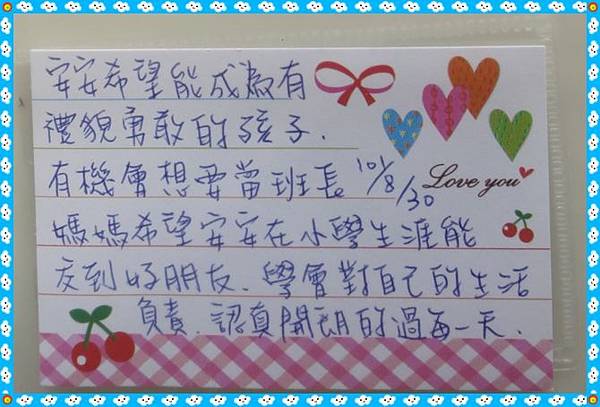 安安希望能成為有
禮貌勇敢的孩子.
有機會想要當班長 101/8/30
Love you
媽媽希望安安在小學生涯能
交到好朋友.學會對自己的生活
負責.認真開朗的過每一天.